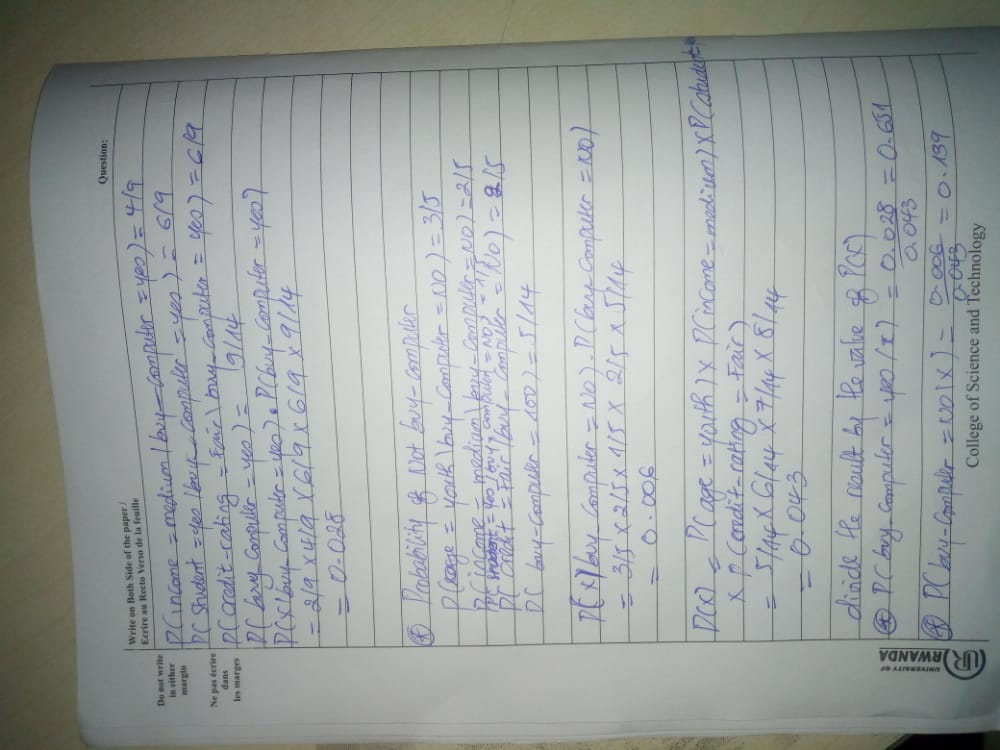 Question:
Write on Both Side of the paper /
Ecrire au Recto Verso de la feuille
Do not write
in either
margin
Ne pas écrire
dans
les marges
P(income = medium / buy-Computer = yes) = 4/9
P(Student = yes / buy-Computer = yes) = 6/9
P(credit-rating = Fair \ buy-Computer = yes) = 6/9
P(buy Computer = yes) = 9/14
P(x \ buy-Computer = yes) • P(buy-Computer = yes)
= 2/9 x 4/9 x 6/9 x 6/9 x 9/14
= 0.028
Probability of Not buy-Computer
P(age = Youth \ buy-Computer = NO) = 3/5
P(income = medium \ buy-Computer = NO) = 2/5
P( student = yes \ buy-computer = NO) = 1/5
P(Credit = Fair / buy-Computer = NO) = 2/5
P( buy-Computer = NO) = 5/14
P(x \ buy Computer = NO) . P(buy-Computer = NO)
= 3/5 x 2/5 x 1/5 x 2/5 x 5/14
= 0.006
P(x) = P(age = youth) x P(income = medium) x P(student
x P(credit-rating = Fair)
= 5/14 x 6/14 x 7/14 x 8/14
= 0.043
divide the result by the value of P(x)
P( buy-Computer = yes / x) = 0.028 / 0.043 = 0.651
P(buy-Computer = NO \ X) = 0.006 / 0.043 = 0.139
UNIVERSITY of
RWANDA
College of Science and Technology